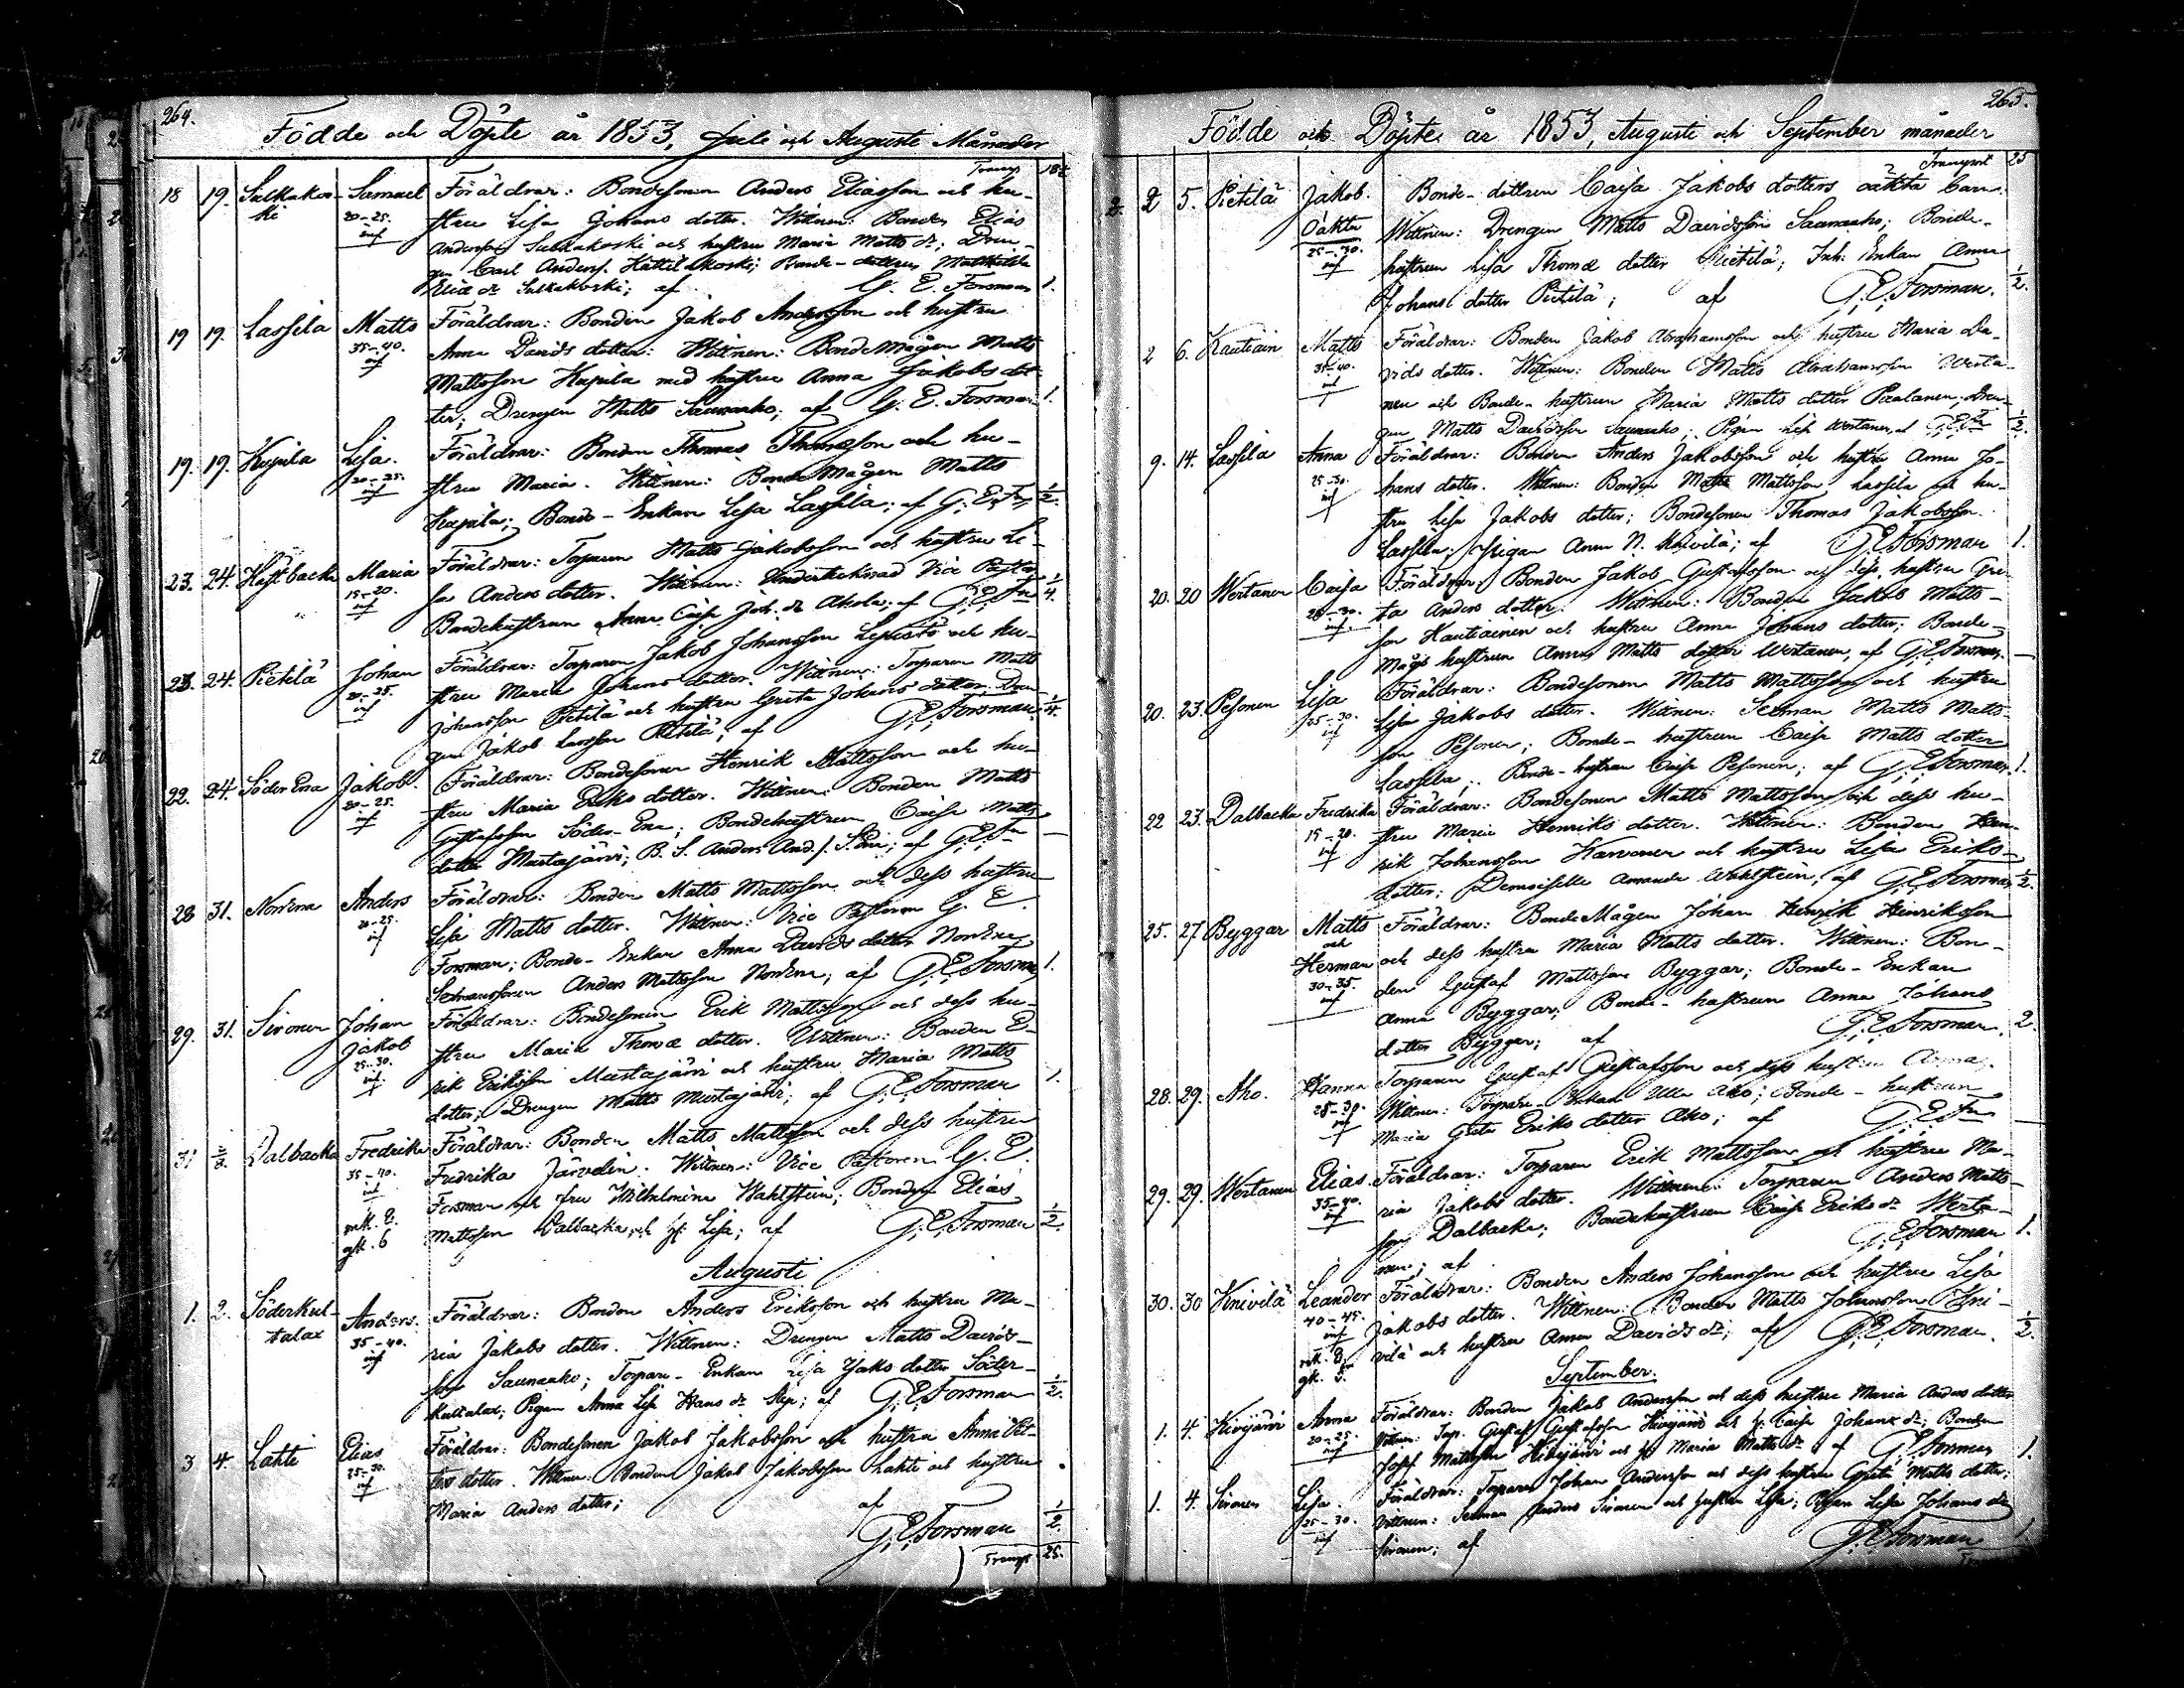 264.
Födde och Döpte år 1853, Juli och Augusti Månader
Transp 18½
18 19. Salkakos- Samuel Föräldrar: Bondesonen Anders Eliasson och hu-
ki 20-25. stru Lisa Johans dotter. Wittnen: Bonden Elias
inf Andersson Salkakoski och hustru Maria Matts dr; Dren-
gen Carl Anderss. Kattilakoski; Bonde-dottren
Eliæ dr Salkakoski; af G. E. Forsman 1.
19 19. Lassila Matts Föräldrar: Bonden Jakob Andersson och hustru
35-40. Anna Davids dotter: Wittnen: BondeMågen Matts
inf Mattsson Kupila med hustru Anna Jakobs dot-
ter; Drengen Matts Saunaaho; af G. E. Forsman 1.
19. 19. Kupila Lisa. Föräldrar: Bonden Thomas Thomasson och hu-
20-25. stru Maria. Wittnen: BondeMågen Matts
inf Kupila; Bonde-Enkan Lisa Lassila; af G. E. Fn ½.
23. 24. Hästbacka Maria Föräldrar: Torparen Matts Jakobsson och hustru Li-
15-20. sa Anders dotter. Wittnen: Undertecknad Vice Pastor
inf Bondehustrun Anna Caisa Joh. dr Ahola; af G. E. Fn ¼.
23. 24. Pietilä Johan Föräldrar: Torparen Jakob Johansson Lepistö och hu-
20-25. stru Maria Johans dotter. Wittnen: Torparen Matts
inf Johansson Pietilä och hustru Greta Johans dotter; Dren-
gen Jakob Larsson Pietilä; af G. E. Forsman. ¼.
22. 24. Söder Ena Jakob. Föräldrar: Bondesonen Henrik Mattsson och hu-
20-25. stru Maria Eriks dotter. Wittnen: Bonden Matts
inf Gustafsson Söder-Ena; Bondehustrun Caisa Matts
dotter Mustajärvi; B. S. Anders And.s. S. Ena; af G. E. Fn —
28 31. NorrEna Anders Föräldrar: Bonden Matts Mattsson och dess hustru
20-25. Lisa Matts dotter. Wittnen: Vice Pastoren G. E.
inf Forsman; Bonde-Enkan Anna Davids dotter NorrEna;
Sexmanssonen Anders Mattsson NorrEna; af G. E. Forsman 1.
29. 31. Sironen Johan Föräldrar: Bondesonen Erik Mattsson och dess hu-
Jakob stru Maria Thomæ dotter. Wittnen: Bonden E-
25-30. rik Eriksson Mustajärvi och hustru Maria Matts
inf. dotter; Drengen Matts Mustajärvi; af G. E. Forsman 1.
31 2/8. Dalbacka Fredrika Föräldrar: Bonden Matts Mattsson och dess hustru
35-40. Fredrika Järvelin. Wittnen: Vice Pastoren G. E.
inf Forsman och fru Wilhelmina Wahlstein; Bonden Elias
mk. 8. Mattsson Dalbacka och h: Lisa; af G. E. Forsman ½.
gk. 6
Augusti
1. 2. Söderkul- Anders. Föräldrar: Bonden Anders Eriksson och hustru Ma-
talax 35-40. ria Jakobs dotter. Wittnen: Drengen Matts Davids-
inf son Saunaaho; Torpare-Enkan Lisa Jakobs dotter Söder-
kultalax; Pigan Anna Lisa Hans dr Slep; af G. E. Forsman ½.
3 4. Lahti Elias Föräldrar: Bondesonen Jakob Jakobsson och hustru Anna Pet-
25-30. ters dotter. Wittnen: Bonden Jakob Jakobsson Lahti och hustru
inf Maria Anders dotter; af
G. E. Forsman ½.
Transp 25.
265.
Födde och Döpte år 1853, Augusti och September månader
Transport 25
2 5. Pietilä Jakob. Bonde-dottren Caisa Jakobs dotters oäkta barn.
Oäkta Wittnen: Drengen Matts Davidsson Saunaaho; Bonde-
25-30. hustrun Lisa Thomæ dotter Pietilä; Inh: Enkan Anna
inf Johans dotter Pietilä; af G. E. Forsman. ½.
2 6. Kautiain Matts Föräldrar: Bonden Jakob Abrahamsson och hustru Maria Da-
35-40. vids dotter. Wittnen: Bonden Matts Abrahamsson Werta-
inf nen och Bonde-hustrun Maria Matts dotter Paalanen; Dren-
gen Matts Davidsson Saunaaho; Pigan Lisa Wertanen, af G. E. Fn ½.
9. 14. Lassila Anna Föräldrar: Bonden Anders Jakobsson och hustru Anna Jo-
25-30. hans dotter. Wittnen: Bonden Matts Mattsson Lassila och hu-
inf stru Lisa Jakobs dotter; Bondesonen Thomas Jakobsson
Lassila; Pigan Anna N. Knivilä; af G. E. Forsman 1.
20. 20 Wertanen Caisa Föräldrar: Bonden Jakob Gustafsson och dess hustru Gre-
25-30. ta Anders dotter. Wittnen: Bonden Jakob Matts-
inf. son Kautiainen och hustru Anna Johans dotter; Bonde-
Mågs hustrun Anna Matts dotter Wertanen, af G. E. Forsman. —
20. 23. Pesonen Lisa Föräldrar: Bondesonen Matts Mattsson och hustru
25-30. Lisa Jakobs dotter. Wittnen: Sexman Matts Matts-
inf son Pesonen; Bonde-hustrun Caisa Matts dotter
Lassila; Bonde-hustrun Caisa Pesonen; af G. E. Forsman. 1.
22 23. Dalbacka Fredrika Föräldrar: Bondesonen Matts Mattsson och dess hu-
15-20. stru Maria Henriks dotter. Wittnen: Bonden Hen-
inf rik Johansson Karvonen och hustru Lisa Eriks-
dotter; Demoiselle Amanda Wahlstein; af G. E. Forsman ½.
25. 27. Byggar Matts Föräldrar: BondeMågen Johan Henrik Henriksson
och
Herman och dess hustru Maria Matts dotter. Wittnen: Bon-
30-35. den Gustaf Mattsson Byggar; Bonde-Enkan
inf Anna Byggar; Bonde-hustrun Anna Johans
dotter Byggar; af G. E. Forsman. 2.
28. 29. Aho. Hanna Torparen Gustaf Gustafsson och dess hustru Anna.
25-30. Wittnen: Torpare-Enkan Ulla Aho; Bonde-hustrun
inf Maria Greta Eriks dotter Aho; af G. E. Fn —
29. 29. Wertanen Elias Föräldrar: Torparen Erik Mattsson och hustru Ma-
35-40. ria Jakobs dotter. Wittnen: Torparen Anders Matts-
inf son Dalbacka; Bondehustrun Caisa Eriks dr Werta-
nen; af G. E. Forsman 1.
30. 30 Knivilä Leander Föräldrar: Bonden Anders Johansson och hustru Lisa
40-45. Jakobs dotter. Wittnen: Bonden Matts Johansson Kni-
inf vilä och hustru Anna Davids dr; af G. E. Forsman. ½.
mk. 8.
gk. 5.
September.
1. 4. Kivijärvi Anna Föräldrar: Bonden Jakob Andersson och dess hustru Maria Anders dotter
20-25. Wittnen: Torp. Gustaf Gustafsson Kivijärvi och h. Caisa Johans dr; Bonden
inf Josef Mattsson Kivijärvi och h: Maria Matts dr af G. E. Forsman 1.
1. 4. Sironen Lisa. Föräldrar: Torparen Johan Andersson och dess hustru Greta Matts dotter;
25-30. Wittnen: Sexman Anders Sironen och hustru Lisa; Pigan Lisa Johans dr
inf Sironen; af G. E. Forsman 1.